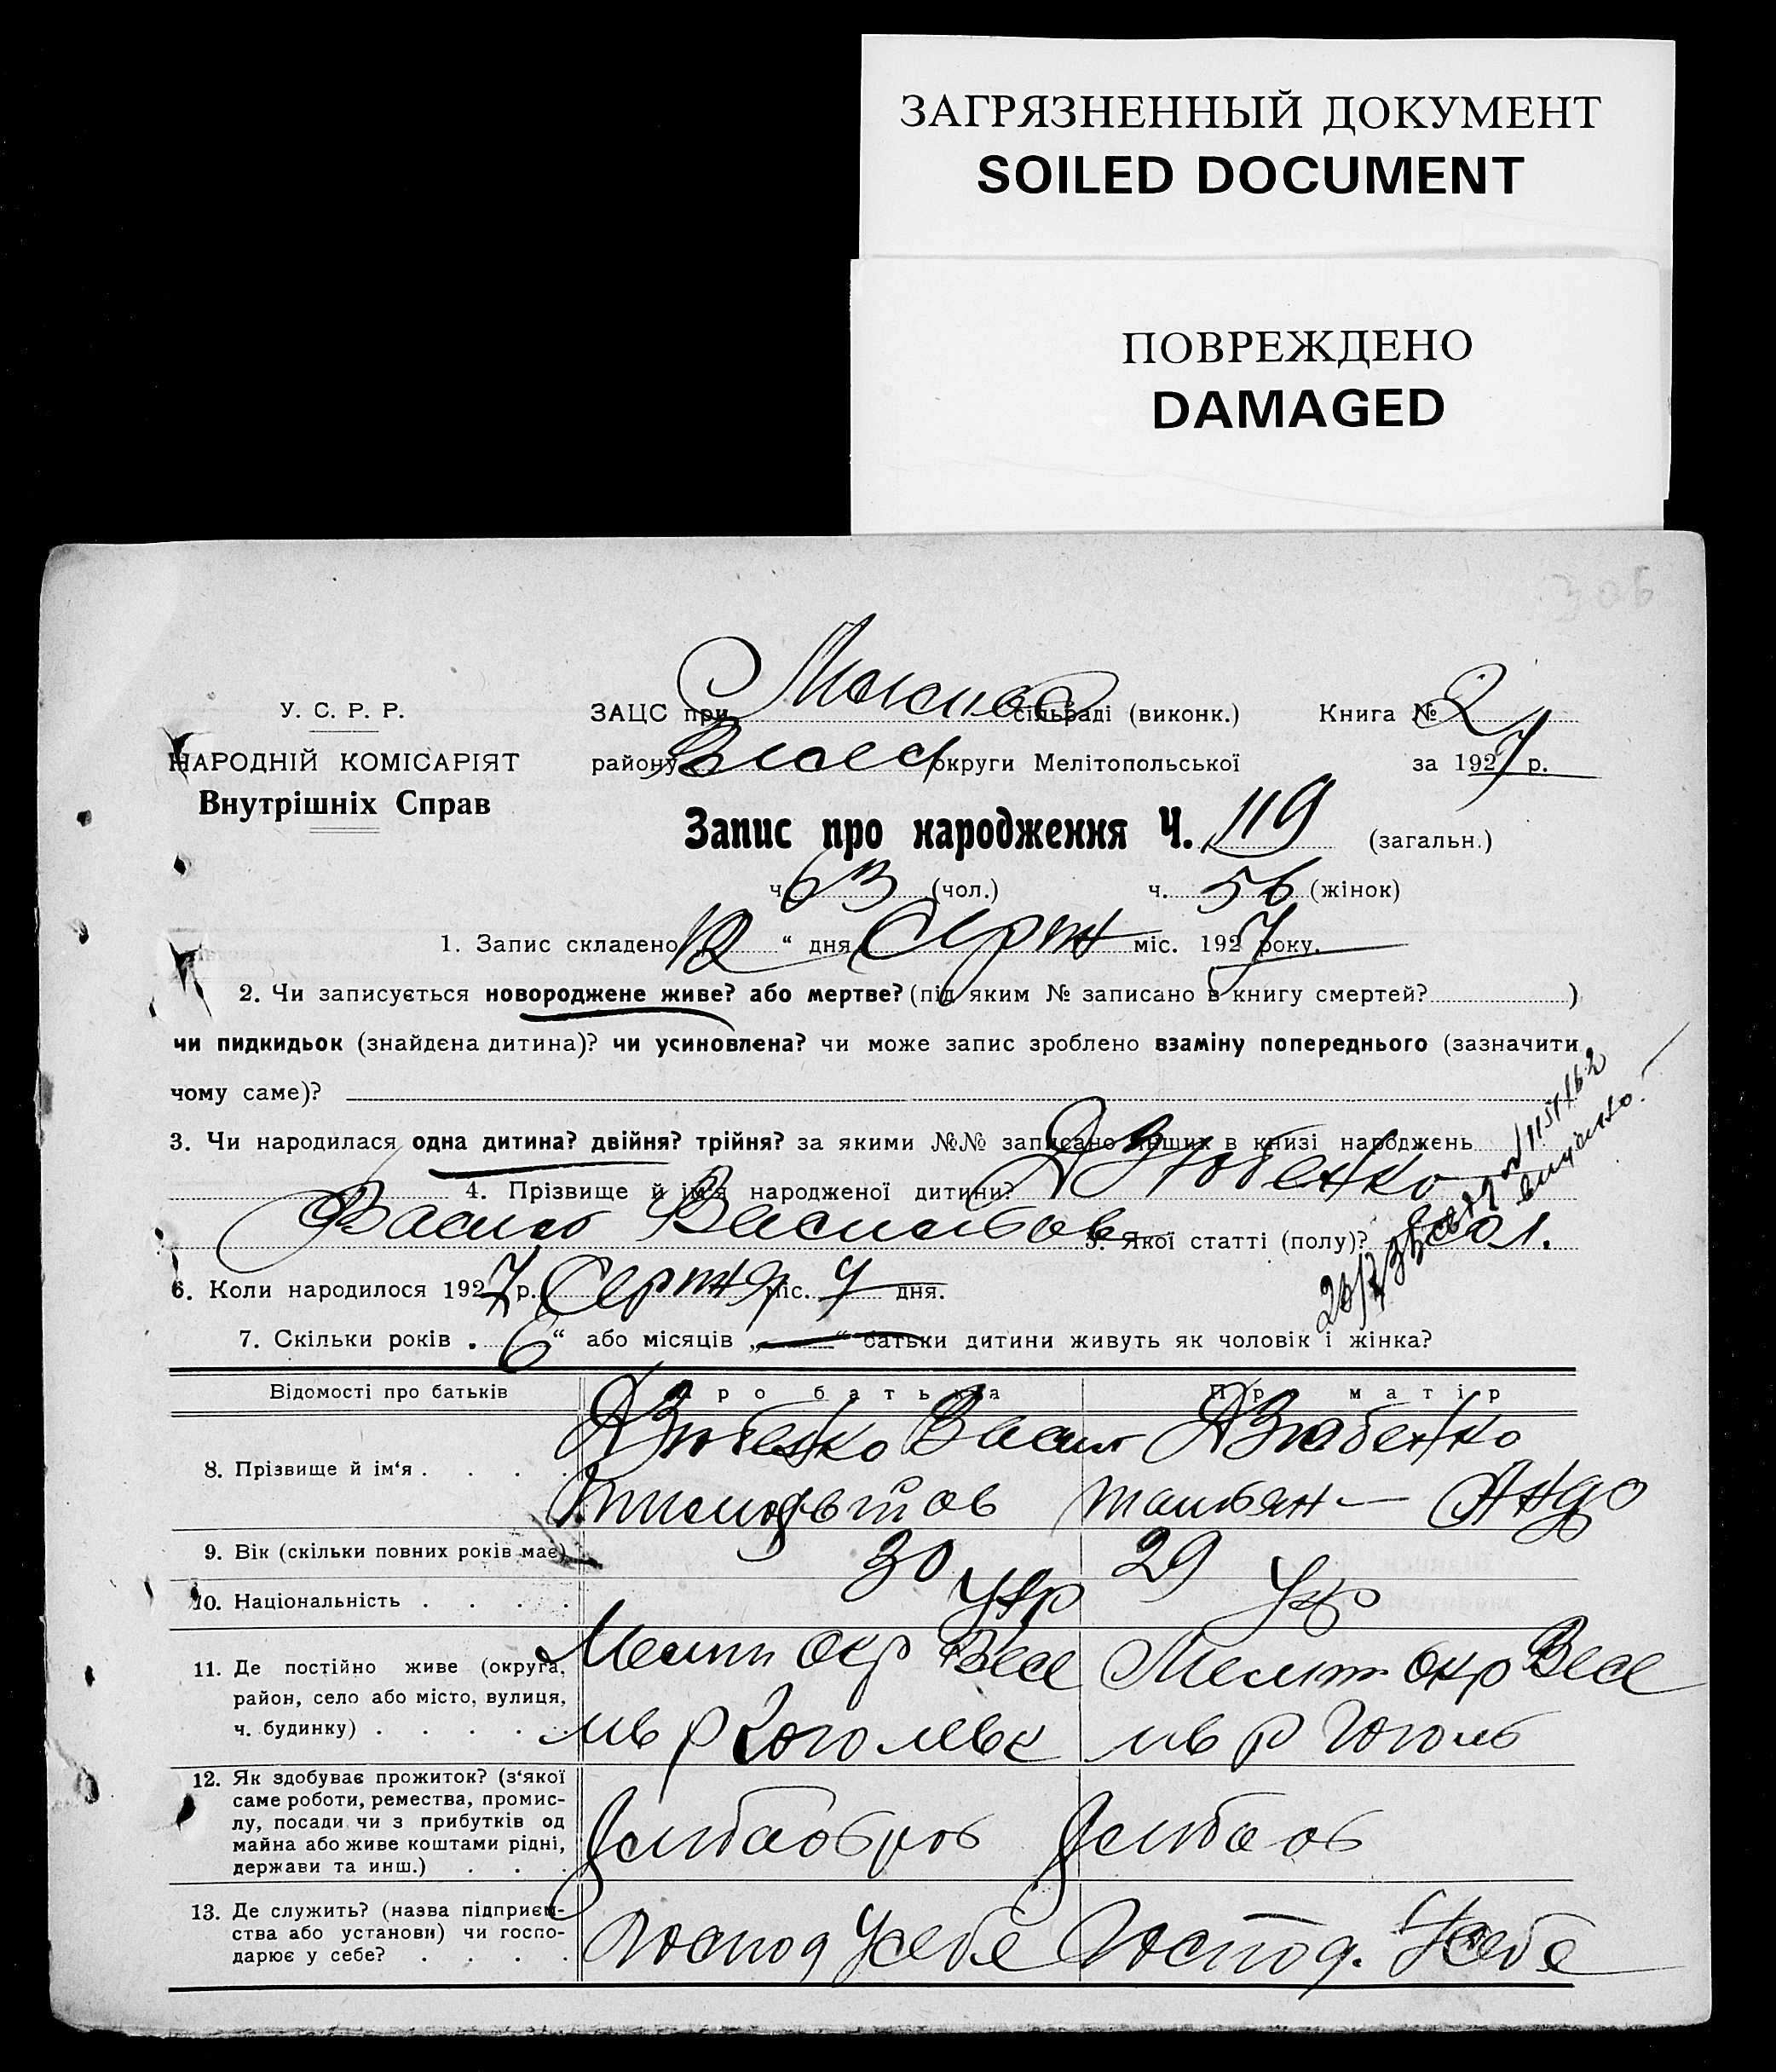 ЗАГРЯЗНЕННЫЙ ДОКУМЕНТ
SOILED DOCUMENT
ПОВРЕЖДЕНО
DAMAGED
У. С. Р. Р.
НАРОДНІЙ КОМІСАРІЯТ
Внутрішніх Справ
ЗАЦС при сільраді (виконк.) Книга № 2
району Весел округи Мелітопольської за 1927 р.
Запис про народження Ч. 119 (загальн.)
ч. 63 (чол.) ч. 56 (жінок)
1. Запис складено „12“ дня Серпня міс. 1927 року.
2. Чи записується новороджене живе? або мертве? (під яким № записано в книгу смертей? )
чи пидкидьок (знайдена дитина)? чи усиновлена? чи може запис зроблено взаміну попереднього (зазначити
чому саме)?
3. Чи народилася одна дитина? двійня? трійня? за якими №№ записано инших в книзі народжень
4. Прізвище й ім'я народженої дитини? Дзюбенко
Василь Васильов 5. Якої статті (полу)? Чол.
6. Коли народилося 1927 р. Серпня міс. 7 дня.
7. Скільки років „6“ або місяців „—“ батьки дитини живуть як чоловік і жінка?
Відомості про батьків Про батька Про матір
8. Прізвище й ім'я . . . . Дзюбенко Василь Дзюбенко
9. Вік (скільки повних років має) 30 29
10. Національність . . . . Укр Укр
11. Де постійно живе (округа, район, село або місто, вулиця, ч. будинку) . . . . . Мелит окр Весе Мелит окр Весе
12. Як здобуває прожиток? (з'якої саме роботи, ремества, промислу, посади чи з прибутків од майна або живе коштами рідні, держави та инш.) . . .
13. Де служить? (назва підприємства або установи) чи господарює у себе? . . . . Господ Усебе Господ. Усебе